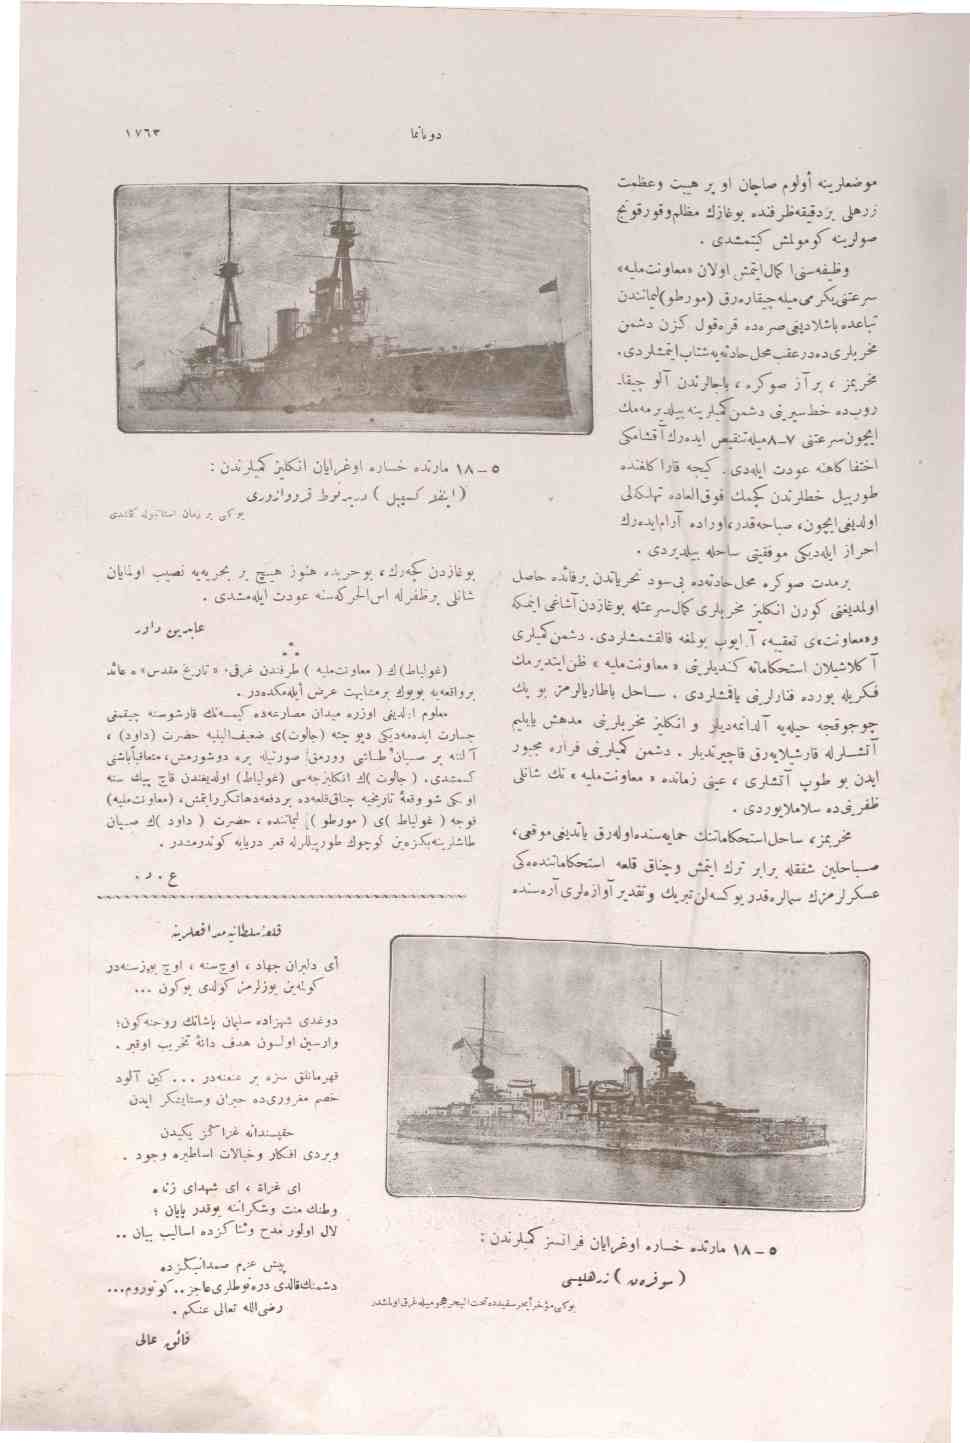 دوناما
١٧٦٣
موضعلرينه أولوم صاچان او پر هيبت وعظمت
زرهلى بردقيقه ظرفنده بوغازك مظلم وقورقونج
صولرينه كومولمش كيتمشدى .
وظيفه‌سنى ا كمال ايتمش اولان «معاونت مليه»
سرعتنى يكرمى ميله چيقاره‌رق (مورطو) ليمانندن
تباعده باشلاديغى صره‌ده قره‌قول كزن دشمن
مخربلرى ده درعقب محل حادثه‌يه شتاب ايتمشلردى.
مخربمز ، بر آز صوكره ، باجالرندن آلو چيقا-
روب ده خط سيرينى دشمن كميلرينه بيلديرمه‌مك
ايچون سرعتنى ٧-٨ ميله تنقيص ايده‌رك آقشامكى
اختفا كاهنه عودت ايله‌دى . كيجه قارا كلغنده
طورپيل خطلرندن كچمك فوق العاده تهلكه‌لى
اولديغى ايچون ، صباحه قدر ، اوراده آرام ايده‌رك
احراز ايله‌ديكى موفقيتى ساحله بيلديردى .
برمدت صوكره محل حادثه‌ده بى سود تحرياتدن برفائده حاصل
اولمديغنى كورن انكليز مخربلرى كمال سرعتله بوغازدن آشاغى اينمكه
و «معاونت»ى تعقيبه ، آرايوب بولمغه قالقشمشلردى. دشمن كميلرى
آكلاشيلان استحكاماته كنديلرينى « معاونت مليه » ظن ايتديرمك
فكريله بورده فنارلرينى ياقمشلردى . ساحل باطاريالرمز بو پك
چوجوقجه حيله‌يه آلدانمه‌ديلر و انكليز مخربلرينى مدهش يايليم
آتشلرله قارشيلايه‌رق قاچيرتديلر . دشمن كميلرينى فراره مجبور
ايدن بو طوپ آتشلرى ، عينى زمانده « معاونت مليه » نك شانلى
ظفرينى ده سلاملايوردى .
مخربمز ، ساحل استحكاماتنك حمايه‌سنده اوله‌رق ياتديغى موقعى،
صباحلين شفقله برابر ترك ايتمش وچناق قلعه استحكاماتنده‌كى
عسكرلرمزك سمالره قدر يوكسه‌لن تبريك وتقدير آوازه‌لرى آره‌سنده
٥ - ١٨ مارتده خساره اوغرايان انكليز كميلرندن :
( اينفلكسيبل ) دريدنوط قرووازورى
بوكمى بر زمان استانبوله كلدى
بوغازدن كچه‌رك ، بو حربده هنوز هيچ بر بحريه‌يه نصيب اولمايان
شانلى برظفرله اس الحركه‌سنه عودت ايله‌مشدى .
عابدين داور
(غولياط) ك ( معاونت مليه ) طرفندن غرقى، « تاريخ مقدس » ه عائد
برواقعه‌يه بويوك برمشابهت عرض ايله‌مكده‌در.
معلوم اولديغى اوزره ميدان مصارعه‌ده كيمسه‌نك قارشوسنه چيقمغى
جسارت ايده‌مه‌ديكى ديو جثه (جالوت)ى ضعيف البنيه حضرت (داود) ،
آلتنه بر صپان طاشى وورمق صورتيله يره دوشورمش، متعاقباً باشنى
كسمشدى. ( جالوت )ك انكليزجه‌سى (غولياط) اولديغندن قاچ بيك سنه
اولكى شو وقعهٔ تاريخيه چناق قلعه‌ده بردفعه‌دها تكرر ايتمش، (معاونت مليه)
قوجه ( غولياط )ى ( مورطو ) ليماننده ، حضرت ( داود )ك صپان
طاشلرينه بكزه‌ين كوچوك طورپيللرله قعر دريايه كوندرمشدر .
ع . د .
قلعهٔ سلطانيه مدافعلرينه
أى دليران جهاد ، اوچ سنه ، اوچ يوز سنه‌در
كولمه‌ين يوزلرمز كولدى بوكون ...
دوغدى شهزاده سليمان پاشانك روحنه كون؛
وارسين اولسون هدف دانهٔ تخريب اوقبر .
قهرمانلق سزه بر عنعنه‌در ... كين آلود
خصم مغرورى ده حيران وستايشكر ايدن
غزاكز يكيدن
ويردى افكار وخيالات اساطيره وجود .
اى غزاة ، اى شهداى زنده
وطنك منت وشكراننه يوقدر پايان ؛
لال اولور مدح وثناكزده اساليب بيان ..
پيش عزم صمدانيكزده
دشمنك قالدى دره‌نوطلرى عاجز .. كوتوروم...
رضى الله تعالى عنكم .
فائق عالى
٥ - ١٨ مارتده خساره اوغرايان فرانسز كميلرندن :
( سوفره‌ن ) زرهليسى
بوكمى مؤخراً بحر سفيدده تحت البحر هجوميله غرق اولمشدر